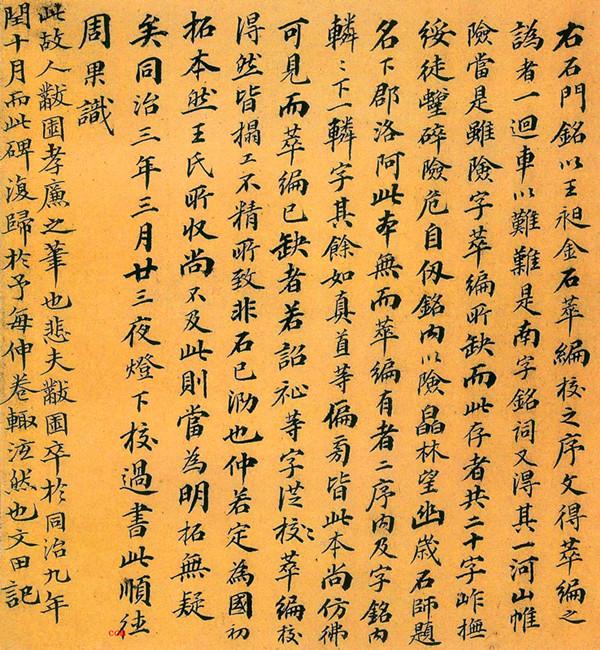 右石門銘以王昶金石萃編校之序文得萃編之
譌者一迴車以難難是南字銘詞又得其一河山帷
險當是雖險字萃編所缺而此存者共二十字岞橅
綏徒蹬碎險危自仭銘內以險晶林望幽歲石師題
名下郡洛阿此本無而萃編有者二序內及字銘內
轔〻下一轔字其餘如真首等偏旁皆此本尚仿佛
可見而萃編已缺者若詔祉等字從校〻萃編校
得然皆搨工不精所致非石已泐也仲若定為國初
拓本然王氏所收尚不及此則當為明拓無疑
矣同治三年三月廿三夜燈下校過書此順德
周果識
此故人黻圃孝廉之筆也悲夫黻圃卒於同治九年
閏十月而此碑復歸於予每伸卷輒泫然也文田記